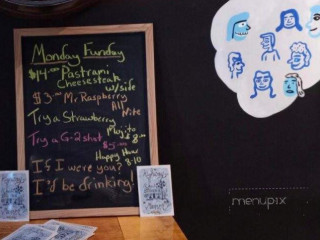 Monday Funday
$14.00 Pastrami
Cheesesteak
w/side
$3.00 Mr. Raspberry
All
Nite
Try a Strawberry
Mojito
$8.00
Try a G-2 shot
$5.00
Happy Hour
8-10
If I were you?
I'd be drinking!
menupix